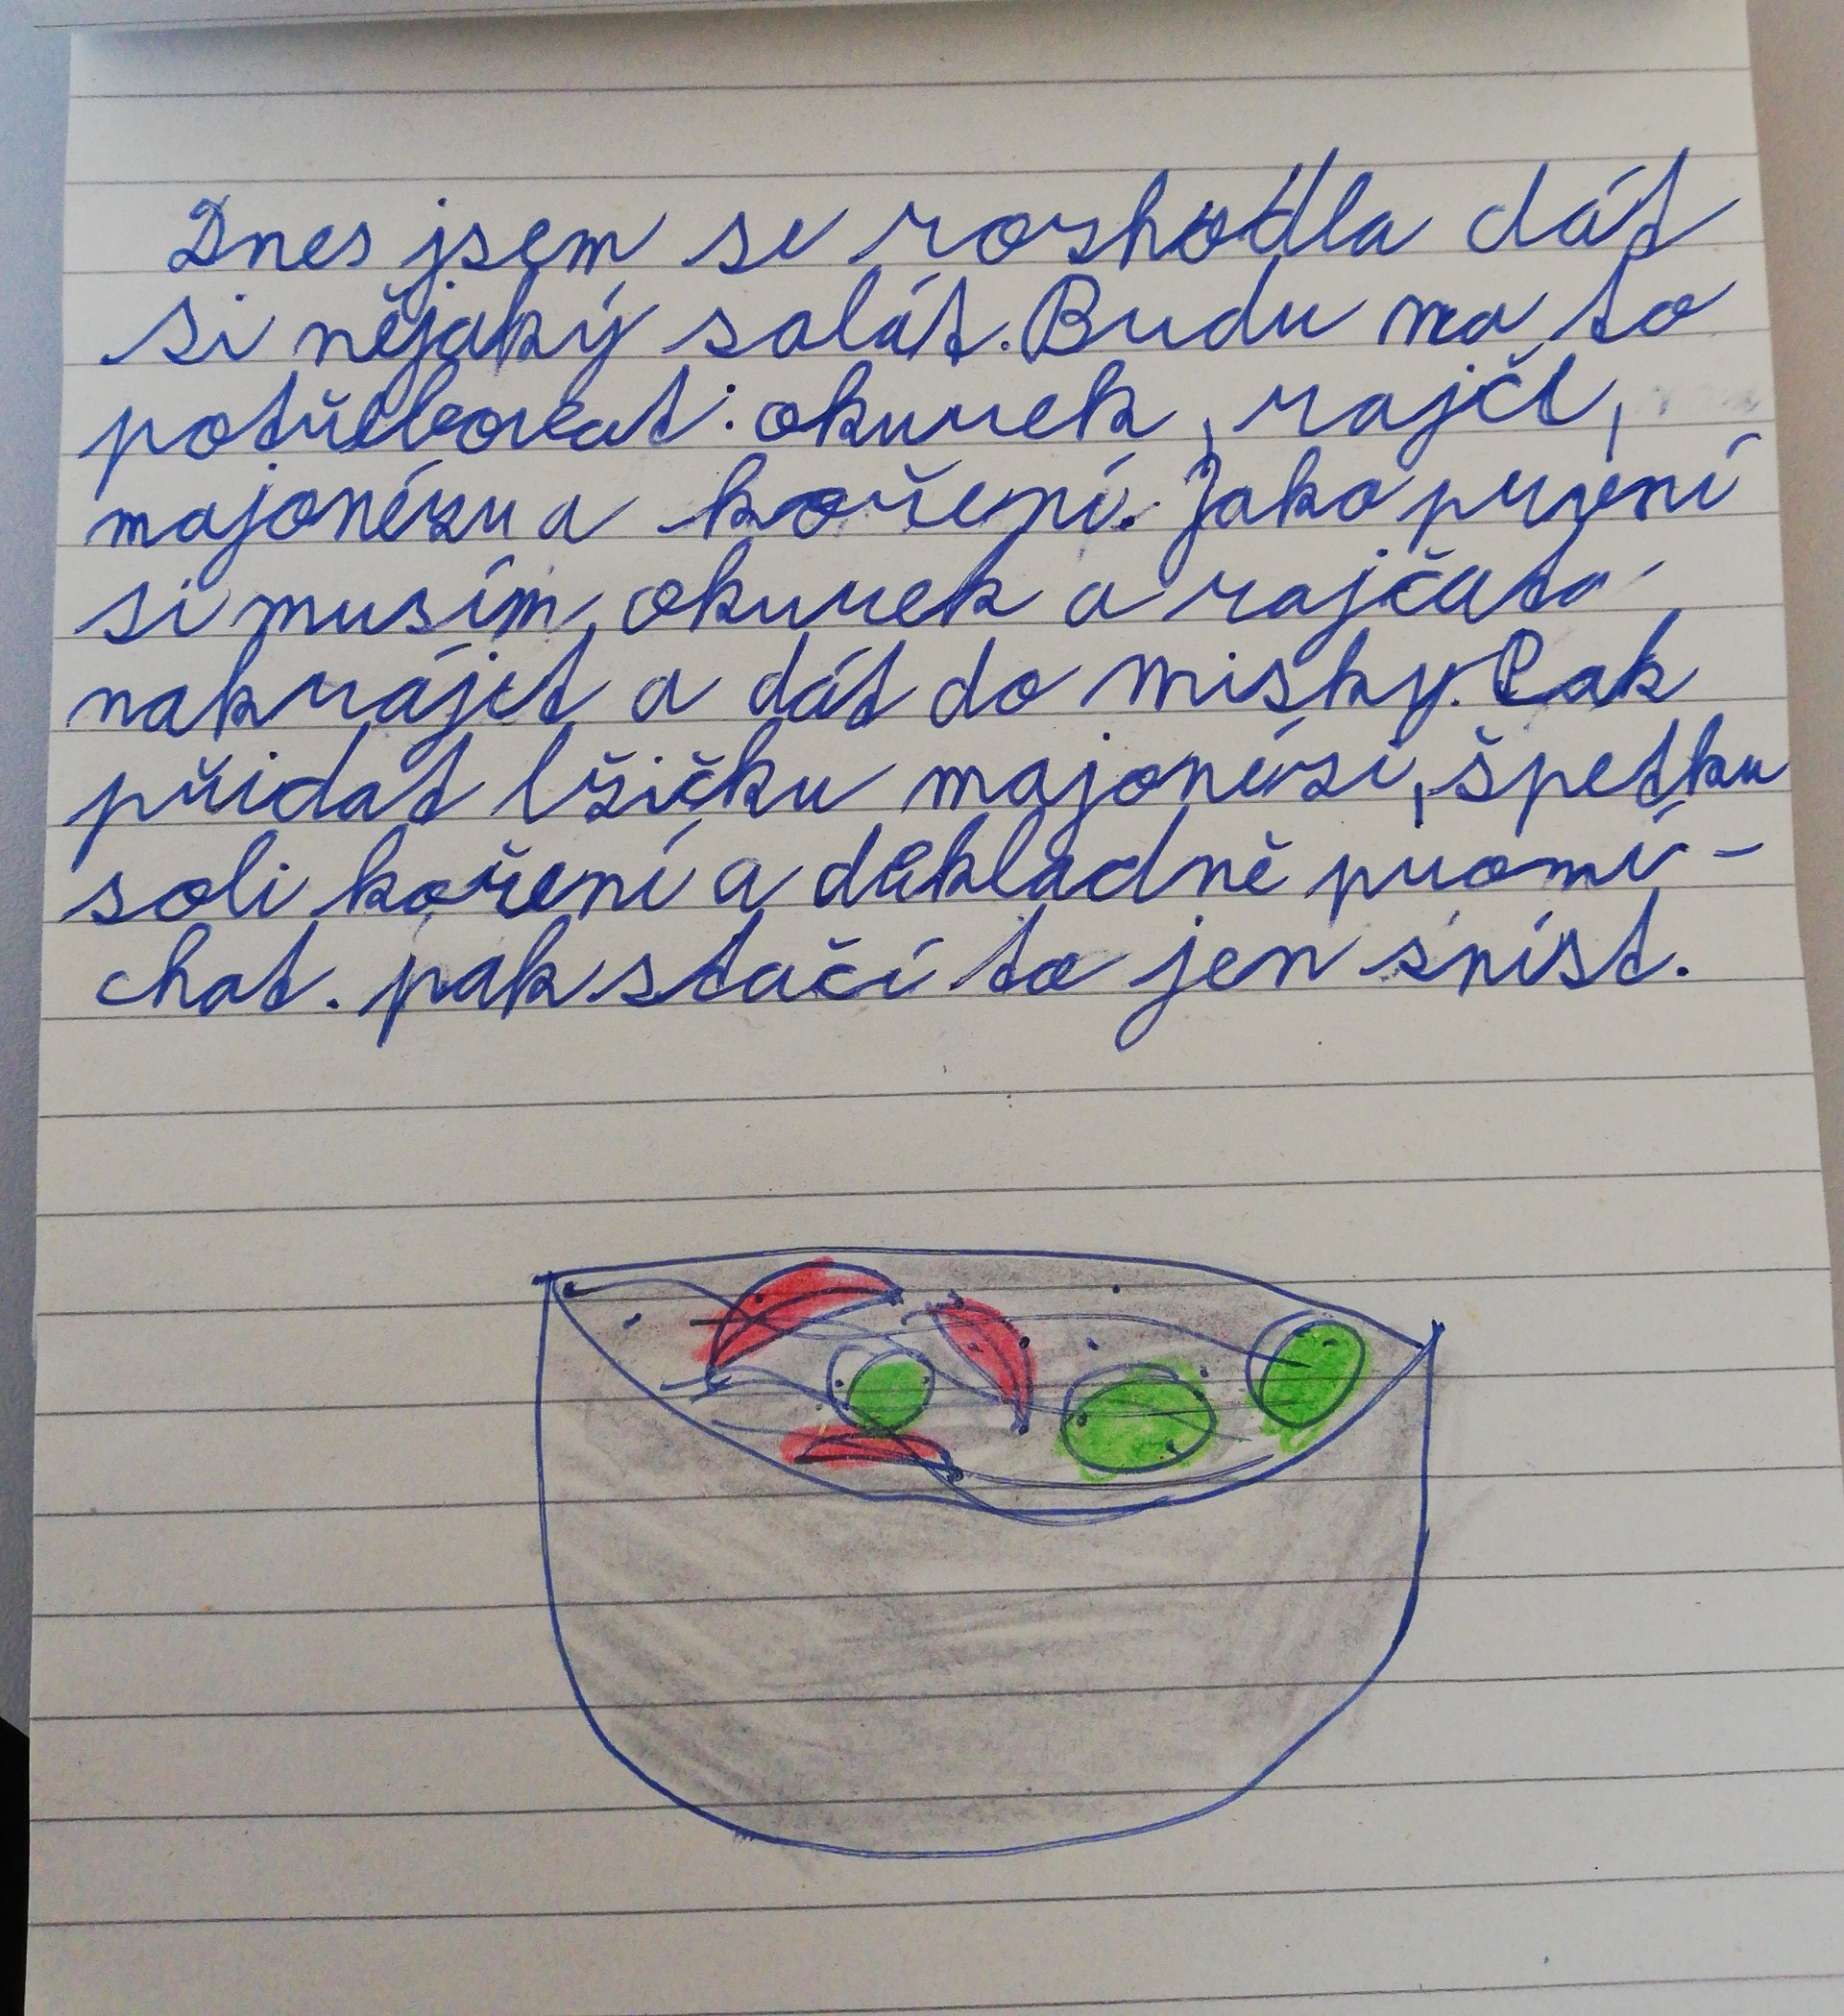 Dnes jsem se rozhodla dát
si nějaký salát. Budu na to
potřebovat: okurek, rajče,
majonézu a koření. Jako první
si musím okurek a rajčata
nakrájet a dát do misky. Pak
přidat lžičku majonézi, špetku
soli koření a důkladně promí-
chat. pak stačí to jen sníst.